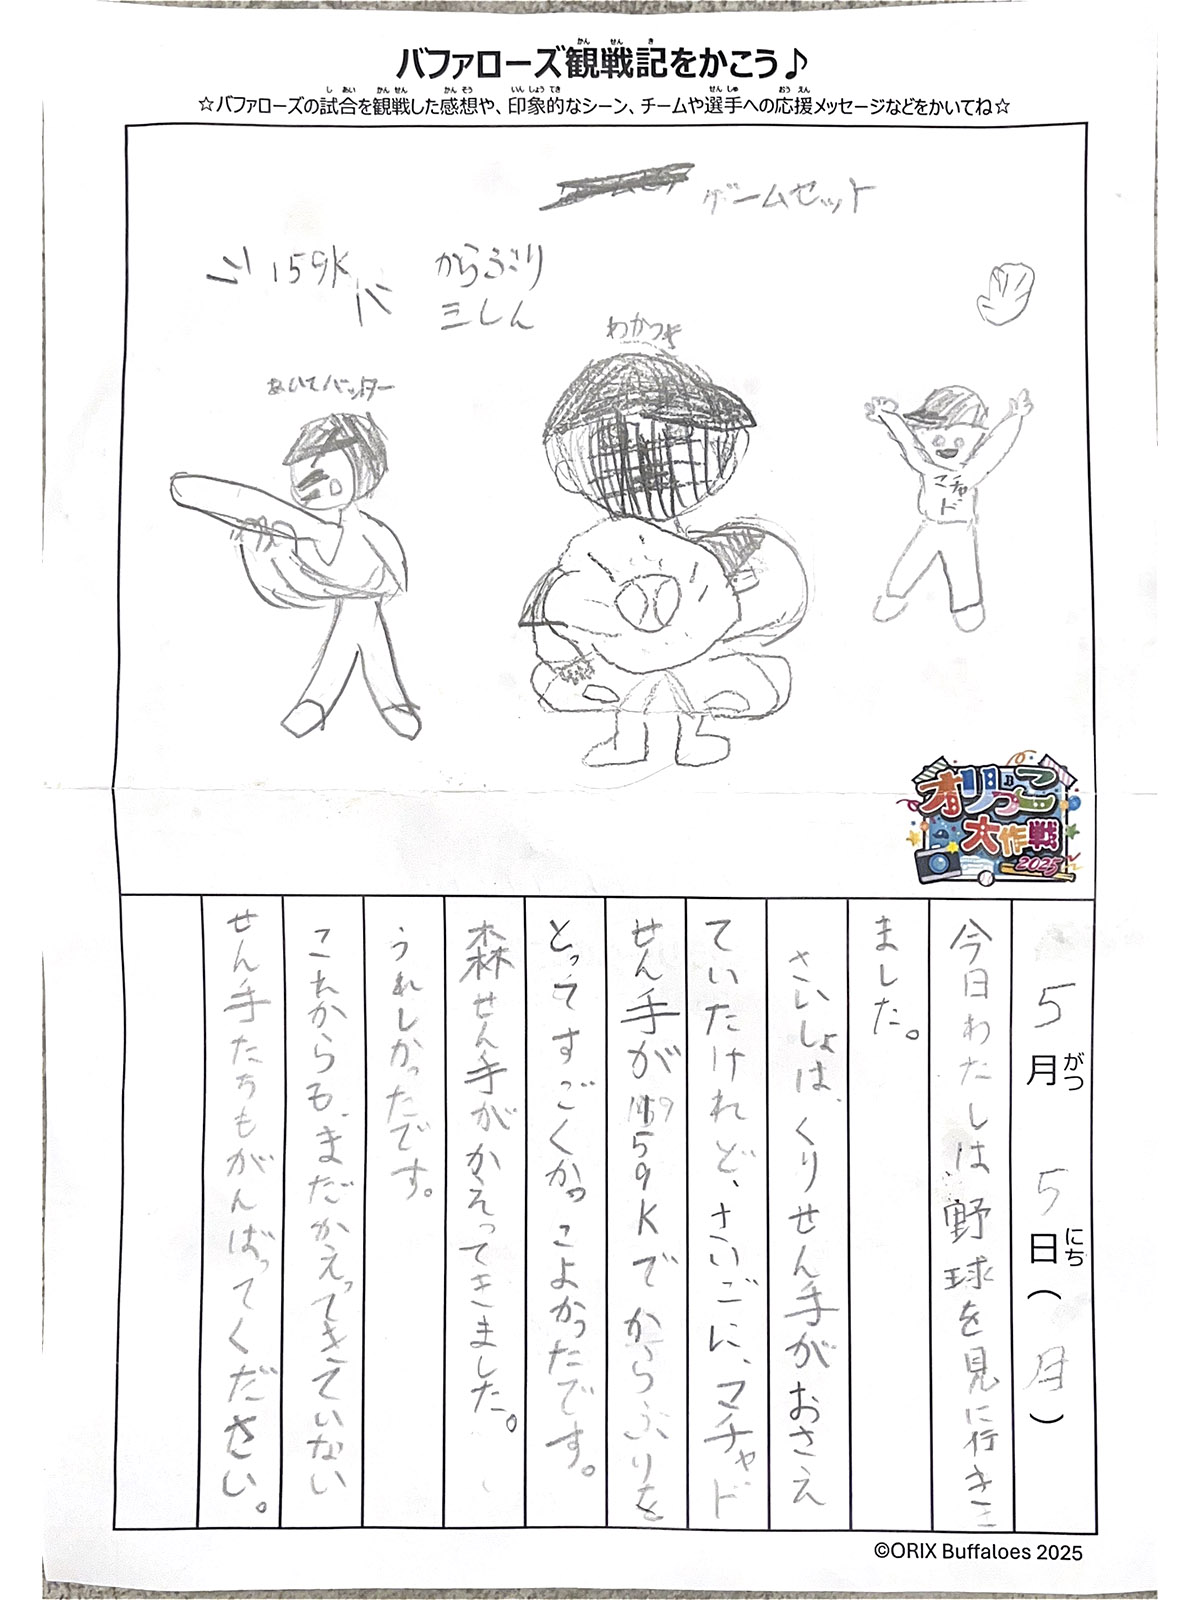 バファローズ観戦記をかこう♪
☆バファローズの試合を観戦した感想や、印象的なシーン、チームや選手への応援メッセージなどをかいてね☆
ゲームセット
159K
からぶり
三しん
わかつき
あいてバッター
マチャド
オリっこ
の大作戦
2025
5月5日(月)
今日わたしは野球を見に行き
ました。
さいしょは、くりせん手がおさえ
ていたけれど、さいごに、マチャド
せん手が159Kでからぶりを
とってすごくかっこよかったです。
森せん手がかえってきました。
うれしかったです。
これからも、まだかえってきていない
せん手たちもがんばってください。
©ORIX Buffaloes 2025